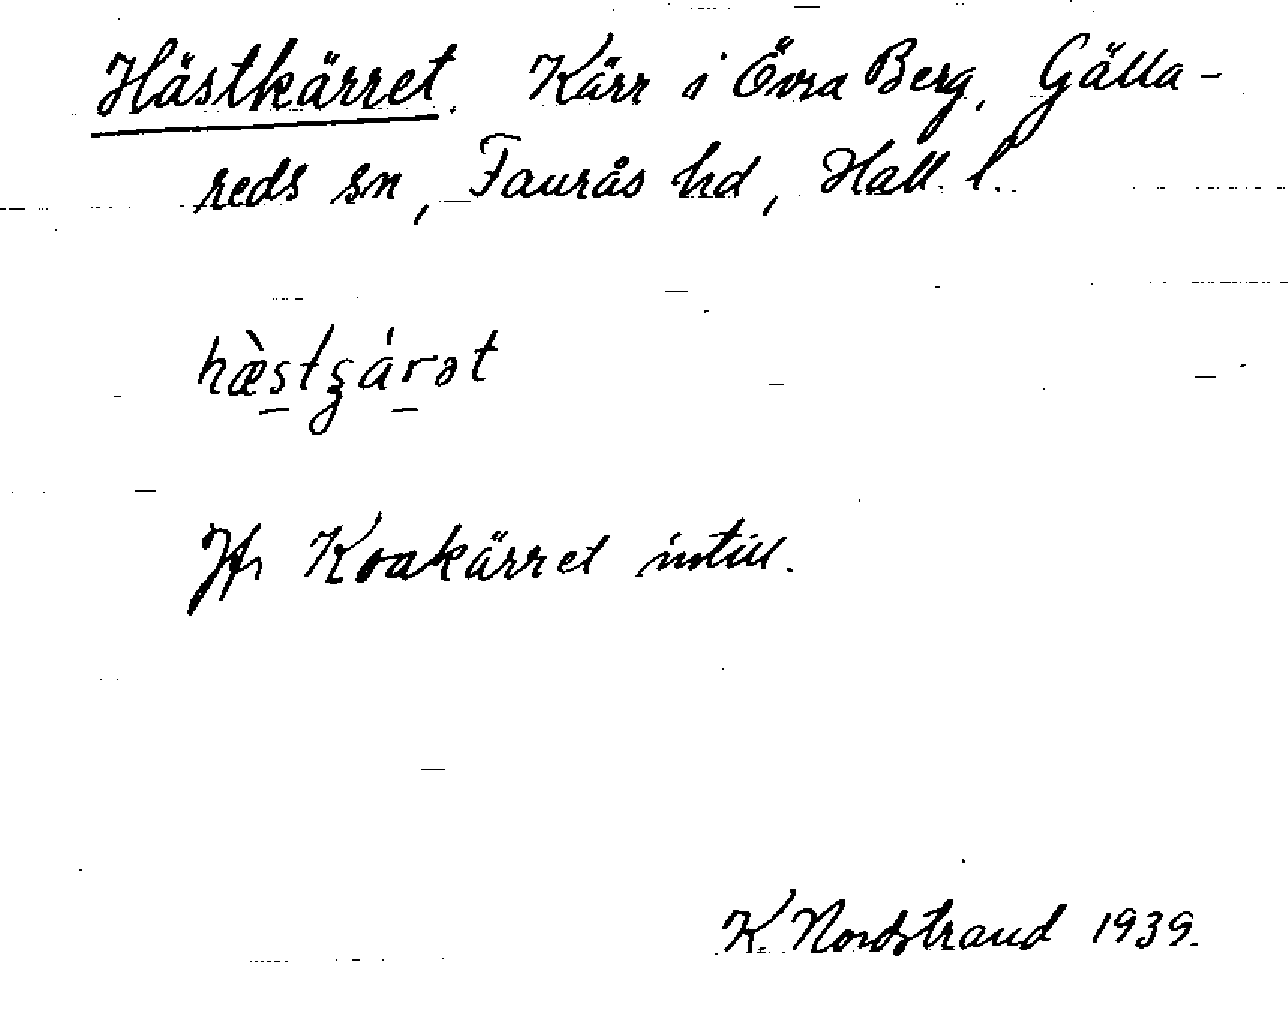 Hästkärret. Kärr i Övra Berg, Gälla-
reds sn, Faurås hd, Hall. l.
Jfr Kvakärret intill.
K. Nordstrand 1939.